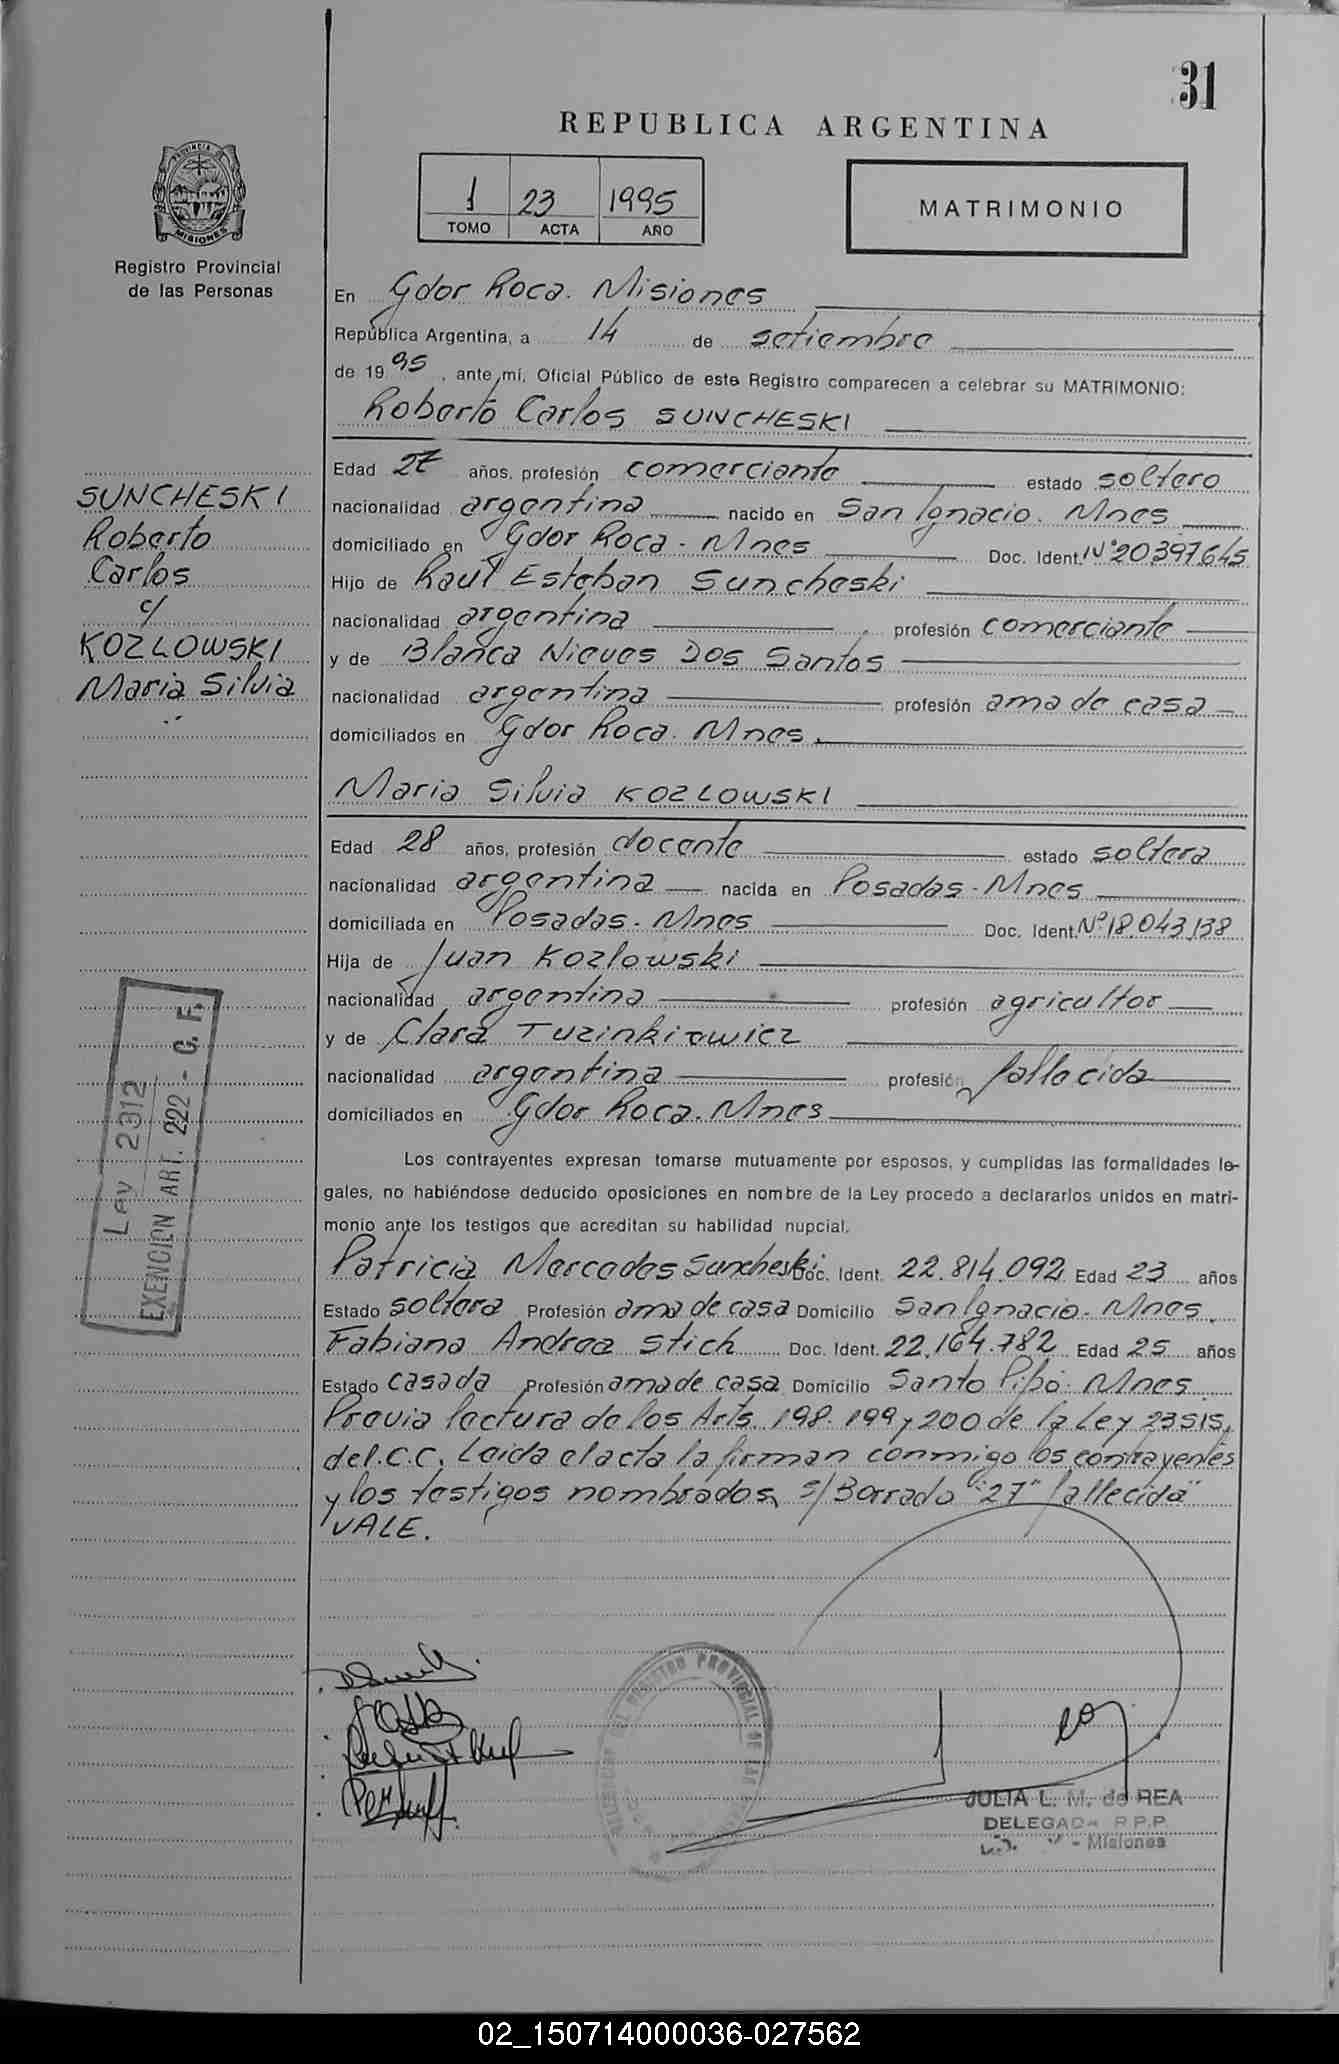 31
REPUBLICA ARGENTINA
1 23 1995
TOMO ACTA AÑO
MATRIMONIO
PROVINCIA
MISIONES
Registro Provincial
de las Personas
En Gdor Roca. Misiones
República Argentina, a 14 de setiembre
de 1995, ante mí, Oficial Público de este Registro comparecen a celebrar su MATRIMONIO:
Roberto Carlos SUNCHESKI
Edad 27 años, profesión comerciante estado soltero
nacionalidad argentina nacido en San Ignacio. Mnes
domiciliado en Gdor Roca - Mnes Doc. Ident. Nº 20397645
Hijo de Raul Esteban Suncheski
nacionalidad argentina, profesión comerciante
y de Blanca Nieves Dos Santos
nacionalidad argentina profesión ama de casa
domiciliados en Gdor Roca. Mnes.
Maria Silvia KOZLOWSKI
Edad 28 años, profesión docente estado soltera
nacionalidad argentina nacida en Posadas - Mnes
domiciliada en Posadas - Mnes Doc. Ident. Nº 18.043.138
Hija de Juan Kozlowski
nacionalidad argentina profesión agricultor
y de Clara Tuzinkiewicz
nacionalidad argentina profesión fallecida
domiciliados en Gdor Roca. Mnes
Los contrayentes expresan tomarse mutuamente por esposos, y cumplidas las formalidades le-
gales, no habiéndose deducido oposiciones en nombre de la Ley procedo a declararlos unidos en matri-
monio ante los testigos que acreditan su habilidad nupcial.
Patricia Mercedes Suncheski Doc. Ident. 22.814.092 Edad 23 años
Estado soltera Profesión ama de casa Domicilio San Ignacio - Mnes.
Fabiana Andrea Stich Doc. Ident. 22.164.782 Edad 25 años
Estado casada Profesión ama de casa Domicilio Santo Pipó - Mnes
Previa lectura de los Arts. 198. 199 y 200 de la Ley 23515,
del C.C. Leida el acta la firman conmigo los contrayentes
y los testigos nombrados, s/ Borrado "27" "fallecida"
VALE.
SUNCHESKI
Roberto
Carlos
c/
KOZLOWSKI
Maria Silvia
Ley 2312
EXENCION ART. 222 - C. F.
JULIA L. M. de REA
DELEGADA R.P.P.
- Misiones
02_150714000036-027562